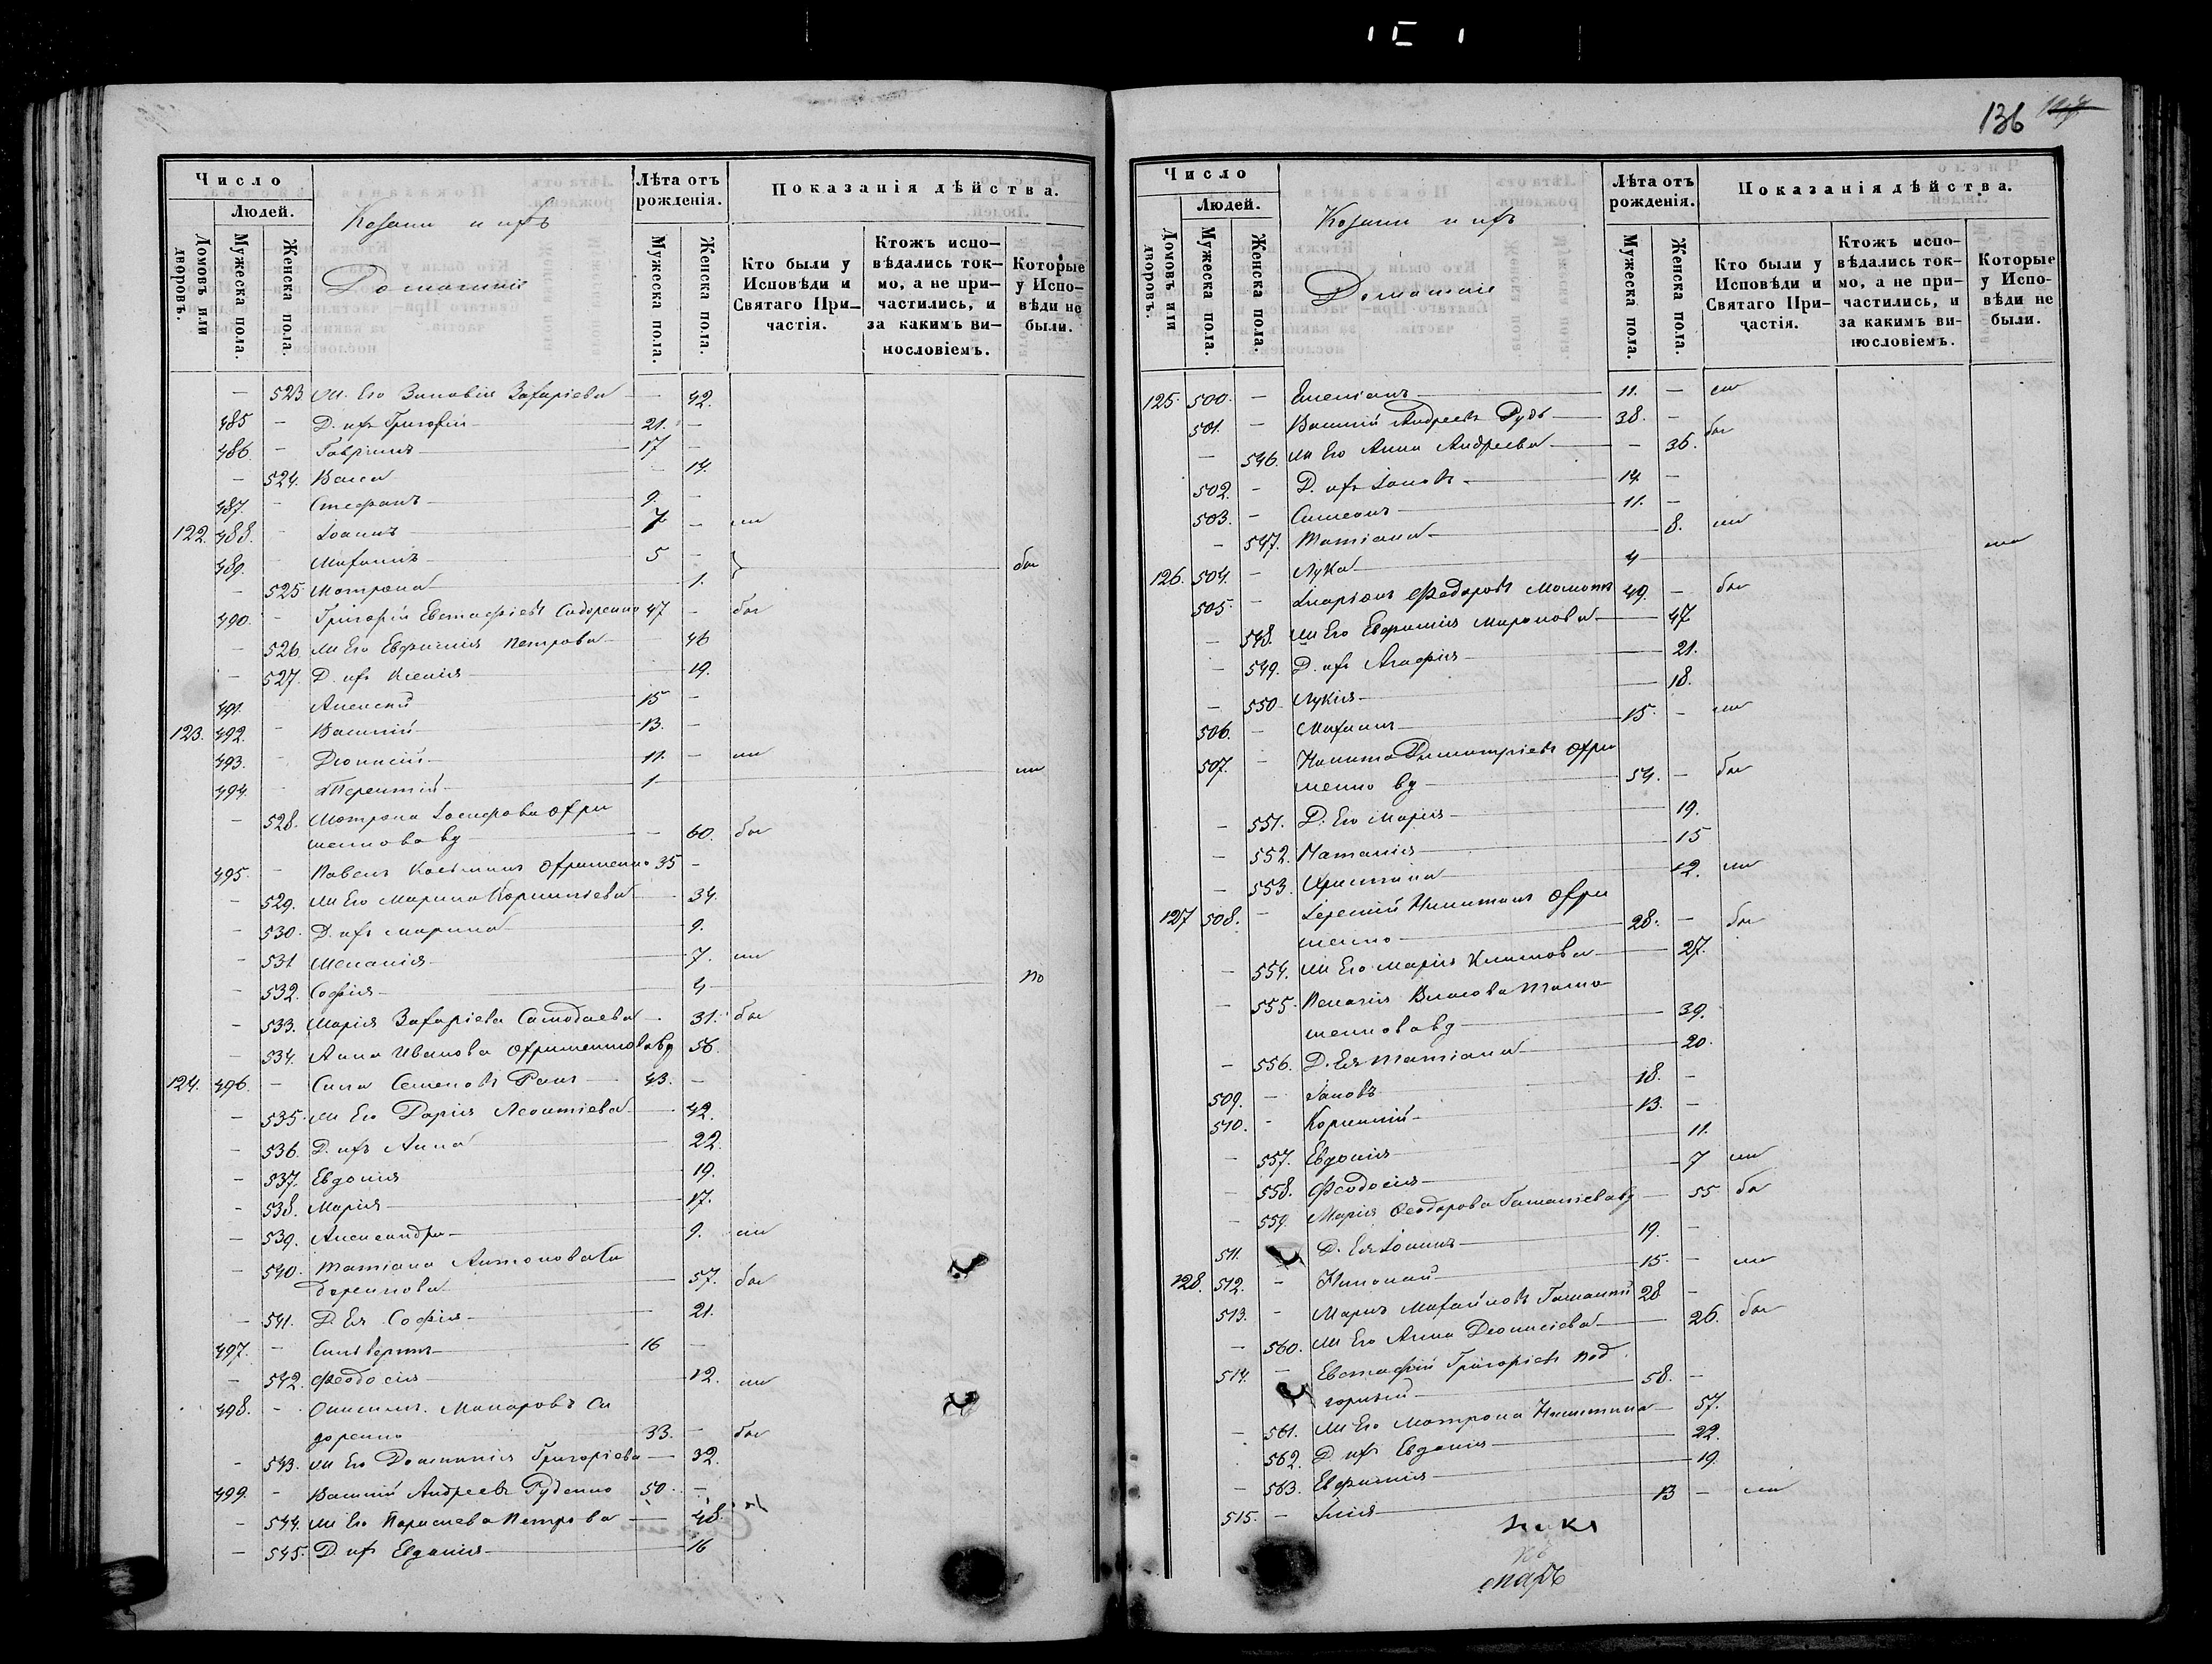 136
Число
Людей.
Домовъ или дворовъ.
Мужеска пола.
Женска пола.
Козаки и ихъ
Домашніе
Лѣта отъ рожденія.
Мужеска пола.
Женска пола.
Показанія дѣйства.
Кто были у Исповѣди и Святаго Причастія.
Ктожъ исповѣдались токмо, а не причастились, и за какимъ винословіемъ.
Которые у Исповѣди не были.
— 523 Ж. Его Зиновія Захаріева — 42.
485 — Д. ихъ Григорій 21. —
486 — Гавріилъ 17 —
— 524. Васса — 14.
487. — Стефанъ 9. —
122. 488. — Іоаннъ 7 —
489. — Михаилъ 5 —
— 525 Матрона 1.
490. — Григорій Евстафіевъ Сидоренко 47 — был
— 526 Ж Его Евфимія Петрова 46
— 527. Д. ихъ Ксенія 19.
491. Алексій 15 —
123. 492. — Василій 13. —
493. — Діонисій 11. —
494. — Терентій 1
— 528. Матрона Іосифова Охри
менкова вд — 60. был
495. — Павелъ Косьминъ Охрименко 35 —
— 529. Ж Его Марина Корниліева 34.
— 530. Д. ихъ Марина 9.
— 531 Меланія 7.
— 532. Софія 4 по
— 533. Марія Захаріева — 31. был
— 534. Анна Иванова Охрименкова вд 56
124. 496. — Сила Семеновъ 43. —
— 535. Ж Его Дарія Леонтіева 42.
— 536. Д. ихъ Анна 22.
— 537. Евдокія 19.
— 538. Марія 17.
— 539. Александра 9.
— 540. Татіана Антонова Си
доренкова 57. был
— 541. Д. Ея Софія 21.
497. — Сильверстъ 16 —
— 542. Феодосія 12.
498. — Онисимъ Макаровъ Си
доренко 33. — был
— 543. Ж Его Домникія Григоріева 32.
499. — Василій Андреевъ Руденко 50. —
— 544. Ж Его Параскева Петрова 48.
— 545. Д. ихъ Евдокія 16
Число
Людей.
Домовъ или дворовъ.
Мужеска пола.
Женска пола.
Козаки и ихъ
Домашніе
Лѣта отъ рожденія.
Мужеска пола.
Женска пола.
Показанія дѣйства.
Кто были у Исповѣди и Святаго Причастія.
Ктожъ исповѣдались токмо, а не причастились, и за какимъ винословіемъ.
Которые у Исповѣди не были.
125. 500. — Емеліанъ 11. —
501. — Василій Андреевъ Рудь 38. — был
— 546. Ж Его Анна Андреева — 36.
502. — Д. ихъ Іаковъ 14 —
503. — Симеонъ 11. —
— 547. Татіана 8.
126. 504. — Лука 4
505. — Иларіонъ Феодоровъ 49. — был
— 548. Ж Его Евфимія Миронова 47
— 549. Д. ихъ Агафія 21.
— 550 Лукія 18.
506. — Михаилъ 15. —
507. — Никита Димитріевъ Охри
менко вд 54. — был
— 551. Д. Его Марія 19.
— 552. Наталія 15
— 553. Христина 12.
127 508. — Іеремій Никитинъ Охри
менко 28. — был
— 554. Ж Его Марія Климова 27.
— 555. Пелагія Власова
менкова вд 39.
— 556. Д. Ея Татіана 20.
509. — Іаковъ 18. —
510. — Корнилій 13. —
— 557. Евдокія 11.
— 558. Феодосія 7
— 559. Марія Феодорова вд 55
511. Д. Ея Іоаннъ 19. —
128. 512. — Николай 15. —
513. — Маркъ Михайловъ 28 —
— 560. Ж Его Анна Діонисіева 26. был
514. — Евстафій Григоріевъ Под
горный 58. —
— 561. Ж Его Матрона Никитина 57.
562. Д ихъ Евдокія 22.
— 563. Евфимія 19.
515. — Илія 13 —